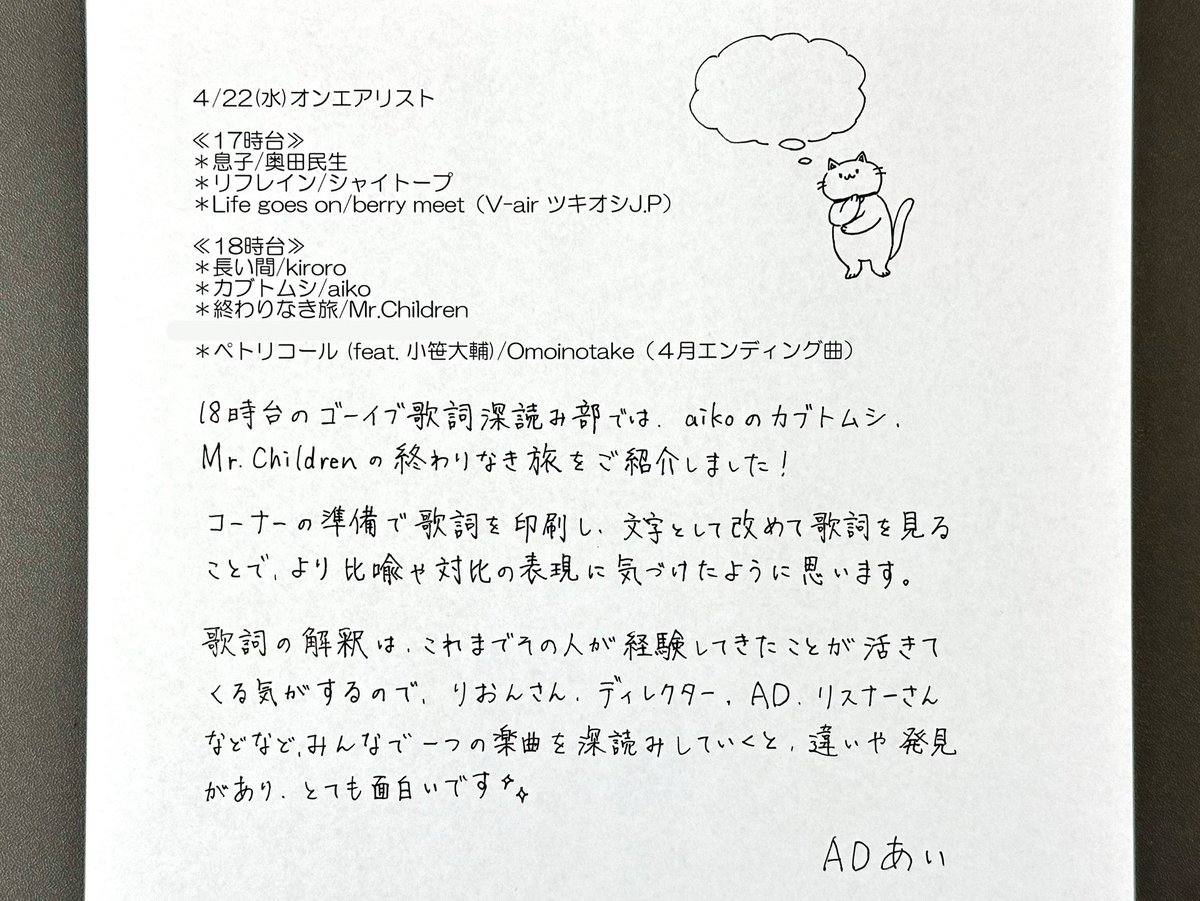 4/22(水)オンエアリスト
≪17時台≫
＊息子/奥田民生
＊リフレイン/シャイトープ
＊Life goes on/berry meet（V-air ツキオシJ.P）
≪18時台≫
＊長い間/kiroro
＊カブトムシ/aiko
＊終わりなき旅/Mr.Children
＊ペトリコール (feat. 小笹大輔)/Omoinotake（４月エンディング曲）
18時台のゴーイブ歌詞深読み部では、aikoのカブトムシ、
Mr.Childrenの終わりなき旅をご紹介しました！
コーナーの準備で歌詞を印刷し、文字として改めて歌詞を見る
ことで、より比喩や対比の表現に気づけたように思います。
歌詞の解釈は、これまでその人が経験してきたことが活きて
くる気がするので、りおんさん、ディレクター、AD、リスナーさん
などなど、みんなで一つの楽曲を深読みしていくと、違いや発見
があり、とても面白いです✨
ADあい